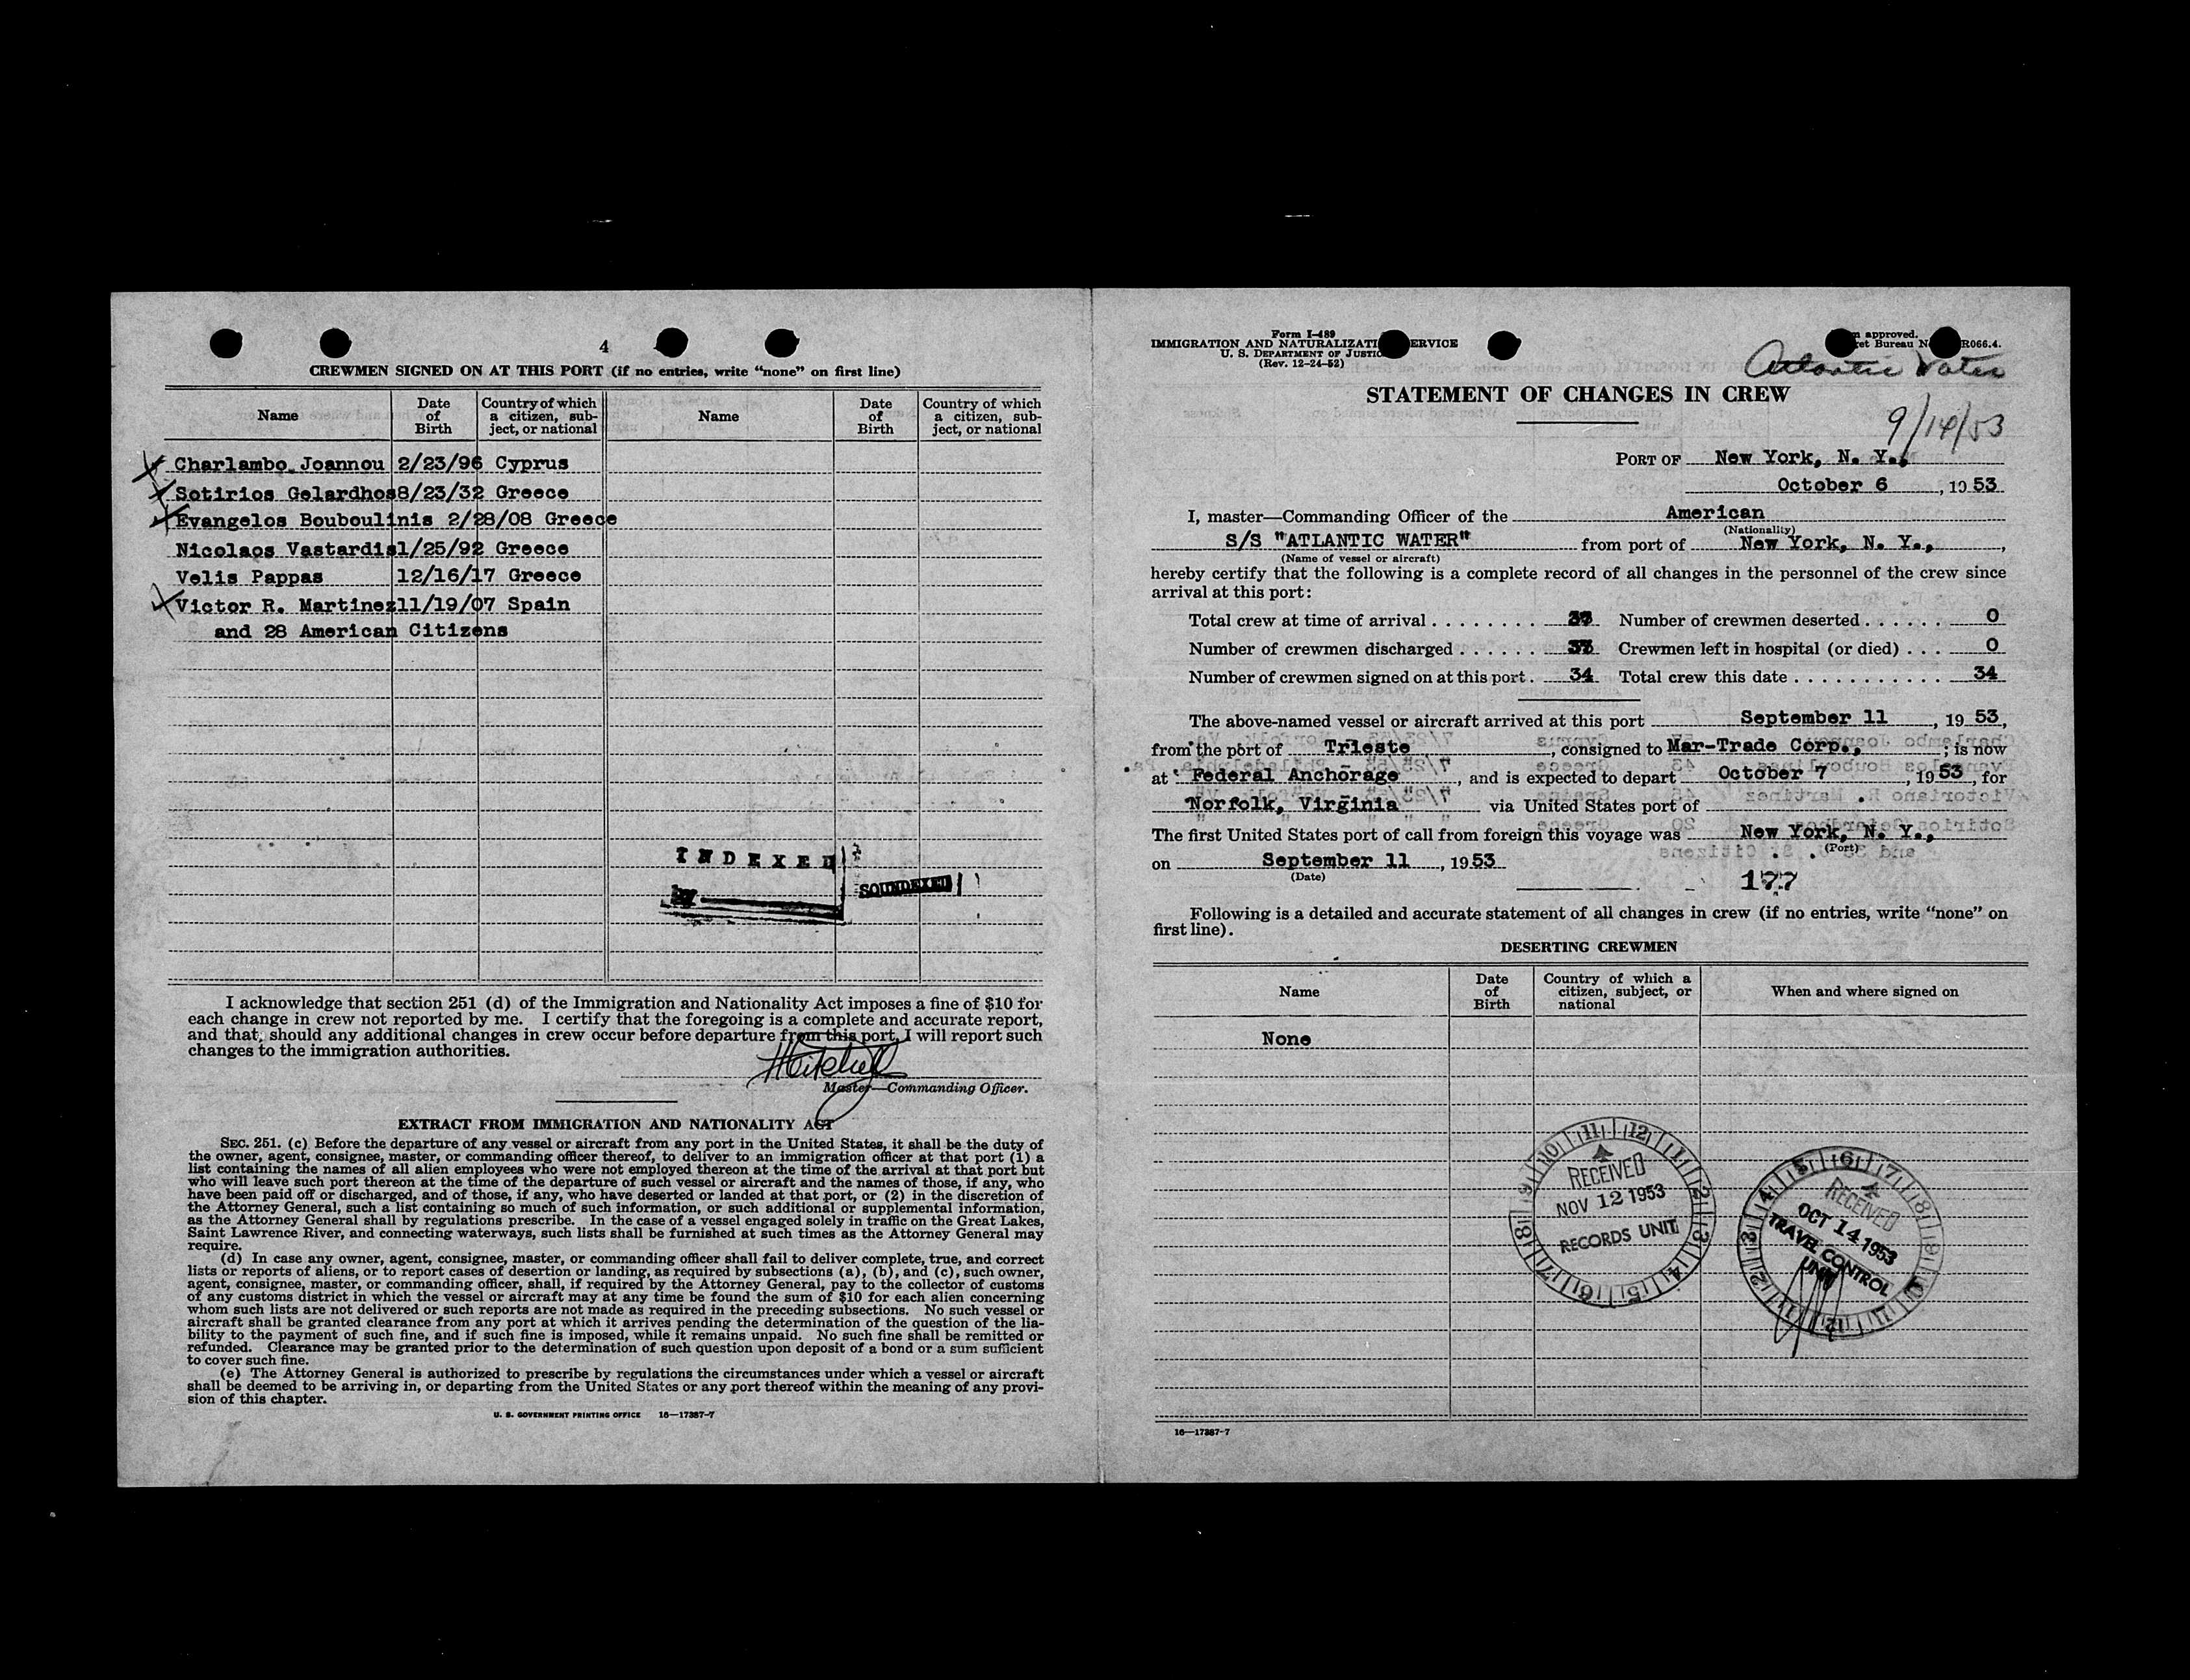 4
CREWMEN SIGNED ON AT THIS PORT (if no entries, write "none" on first line)
Name Date of Birth Country of which a citizen, sub- ject, or national Name Date of Birth Country of which a citizen, sub- ject, or national
Charlambo Joannou 2/23/96 Cyprus
Sotirios Gelardhos 8/23/32 Greece
Evangelos Bouboulinis 2/28/08 Greece
Nicolaos Vastardis 1/25/92 Greece
Velis Pappas 12/16/17 Greece
Victor R. Martinez 11/19/07 Spain
and 28 American Citizens
INDEXED
SOUNDEXED
I acknowledge that section 251 (d) of the Immigration and Nationality Act imposes a fine of $10 for
each change in crew not reported by me. I certify that the foregoing is a complete and accurate report,
and that, should any additional changes in crew occur before departure from this port, I will report such
changes to the immigration authorities.
Mitchell
Master—Commanding Officer.
EXTRACT FROM IMMIGRATION AND NATIONALITY ACT
SEC. 251. (c) Before the departure of any vessel or aircraft from any port in the United States, it shall be the duty of
the owner, agent, consignee, master, or commanding officer thereof, to deliver to an immigration officer at that port (1) a
list containing the names of all alien employees who were not employed thereon at the time of the arrival at that port but
who will leave such port thereon at the time of the departure of such vessel or aircraft and the names of those, if any, who
have been paid off or discharged, and of those, if any, who have deserted or landed at that port, or (2) in the discretion of
the Attorney General, such a list containing so much of such information, or such additional or supplemental information,
as the Attorney General shall by regulations prescribe. In the case of a vessel engaged solely in traffic on the Great Lakes,
Saint Lawrence River, and connecting waterways, such lists shall be furnished at such times as the Attorney General may
require.
(d) In case any owner, agent, consignee, master, or commanding officer shall fail to deliver complete, true, and correct
lists or reports of aliens, or to report cases of desertion or landing, as required by subsections (a), (b), and (c), such owner,
agent, consignee, master, or commanding officer, shall, if required by the Attorney General, pay to the collector of customs
of any customs district in which the vessel or aircraft may at any time be found the sum of $10 for each alien concerning
whom such lists are not delivered or such reports are not made as required in the preceding subsections. No such vessel or
aircraft shall be granted clearance from any port at which it arrives pending the determination of the question of the lia-
bility to the payment of such fine, and if such fine is imposed, while it remains unpaid. No such fine shall be remitted or
refunded. Clearance may be granted prior to the determination of such question upon deposit of a bond or a sum sufficient
to cover such fine.
(e) The Attorney General is authorized to prescribe by regulations the circumstances under which a vessel or aircraft
shall be deemed to be arriving in, or departing from the United States or any port thereof within the meaning of any provi-
sion of this chapter.
U. S. GOVERNMENT PRINTING OFFICE 16—17387-7
Form I-489
IMMIGRATION AND NATURALIZATI ERVICE
U. S. DEPARTMENT OF JUSTIC
(Rev. 12-24-52)
approved.
et Bureau N R066.4.
Atlantic Water
STATEMENT OF CHANGES IN CREW
9/14/53
PORT OF New York, N. Y.,
October 6, 1953
I, master—Commanding Officer of the American
(Nationality)
S/S "ATLANTIC WATER" from port of New York, N. Y.,
(Name of vessel or aircraft)
hereby certify that the following is a complete record of all changes in the personnel of the crew since
arrival at this port:
Total crew at time of arrival Number of crewmen deserted 0
Number of crewmen discharged Crewmen left in hospital (or died) 0
Number of crewmen signed on at this port 34 Total crew this date 34
The above-named vessel or aircraft arrived at this port September 11, 1953,
from the port of Trieste, consigned to Mar-Trade Corp., ; is now
at Federal Anchorage, and is expected to depart October 7, 1953, for
Norfolk, Virginia via United States port of
The first United States port of call from foreign this voyage was New York, N. Y.,
(Port)
on September 11, 1953
(Date)
177
Following is a detailed and accurate statement of all changes in crew (if no entries, write "none" on
first line).
DESERTING CREWMEN
Name Date of Birth Country of which a citizen, subject, or national When and where signed on
None
RECEIVED
NOV 12 1953
RECORDS UNIT
RECEIVED
OCT 14 1953
TRAVEL CONTROL
UNIT
16—17387-7